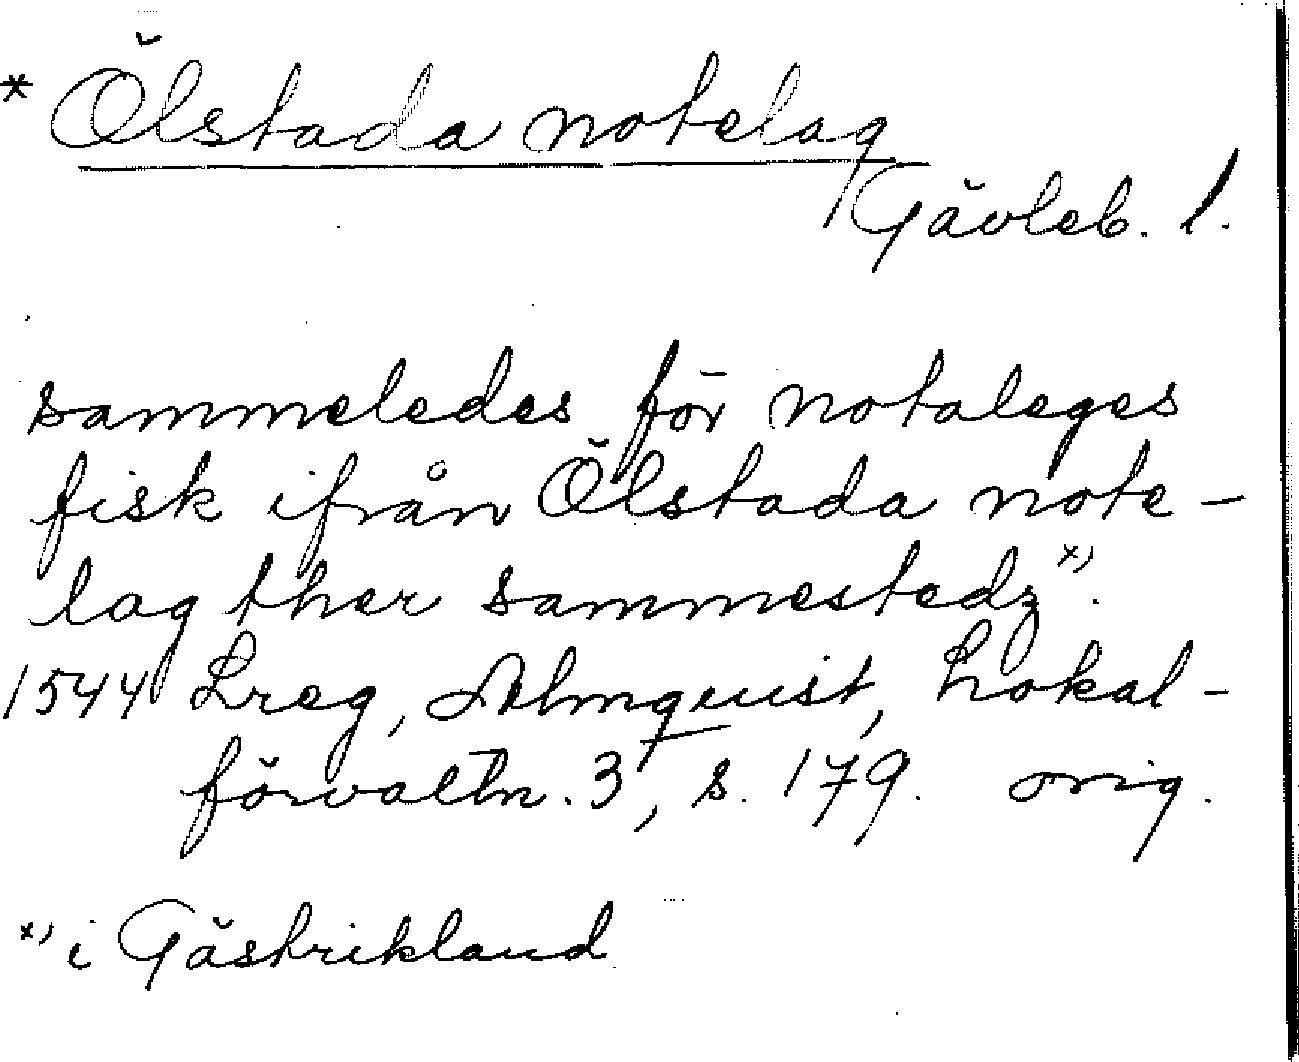 * Ölstada notelag
Gävleb. l.
sammeledes för notaleges
fisk ifrån Ölstada note-
lag ther sammestedz x).
1544 Lreg, Almquist, Lokal-
förvaltn. 3, s. 179. orig.
x) i Gästrikland